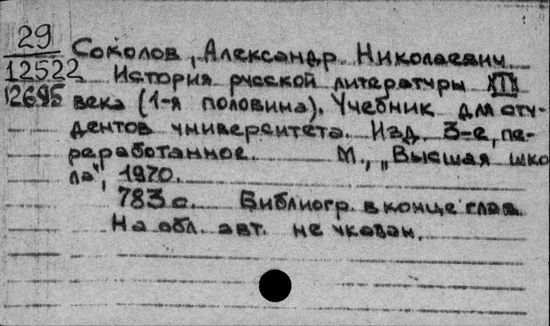 29
12522
12695
Соколов, Александр Николаевич
История русской литературы XIX
века (1-я половина). Учебник для сту-
дентов университета. Изд. 3-е, пе-
реработанное. М., „Высшая шко
ла", 1970.
783 с. Библиогр. в конце глав.
На обл. авт. не указан.